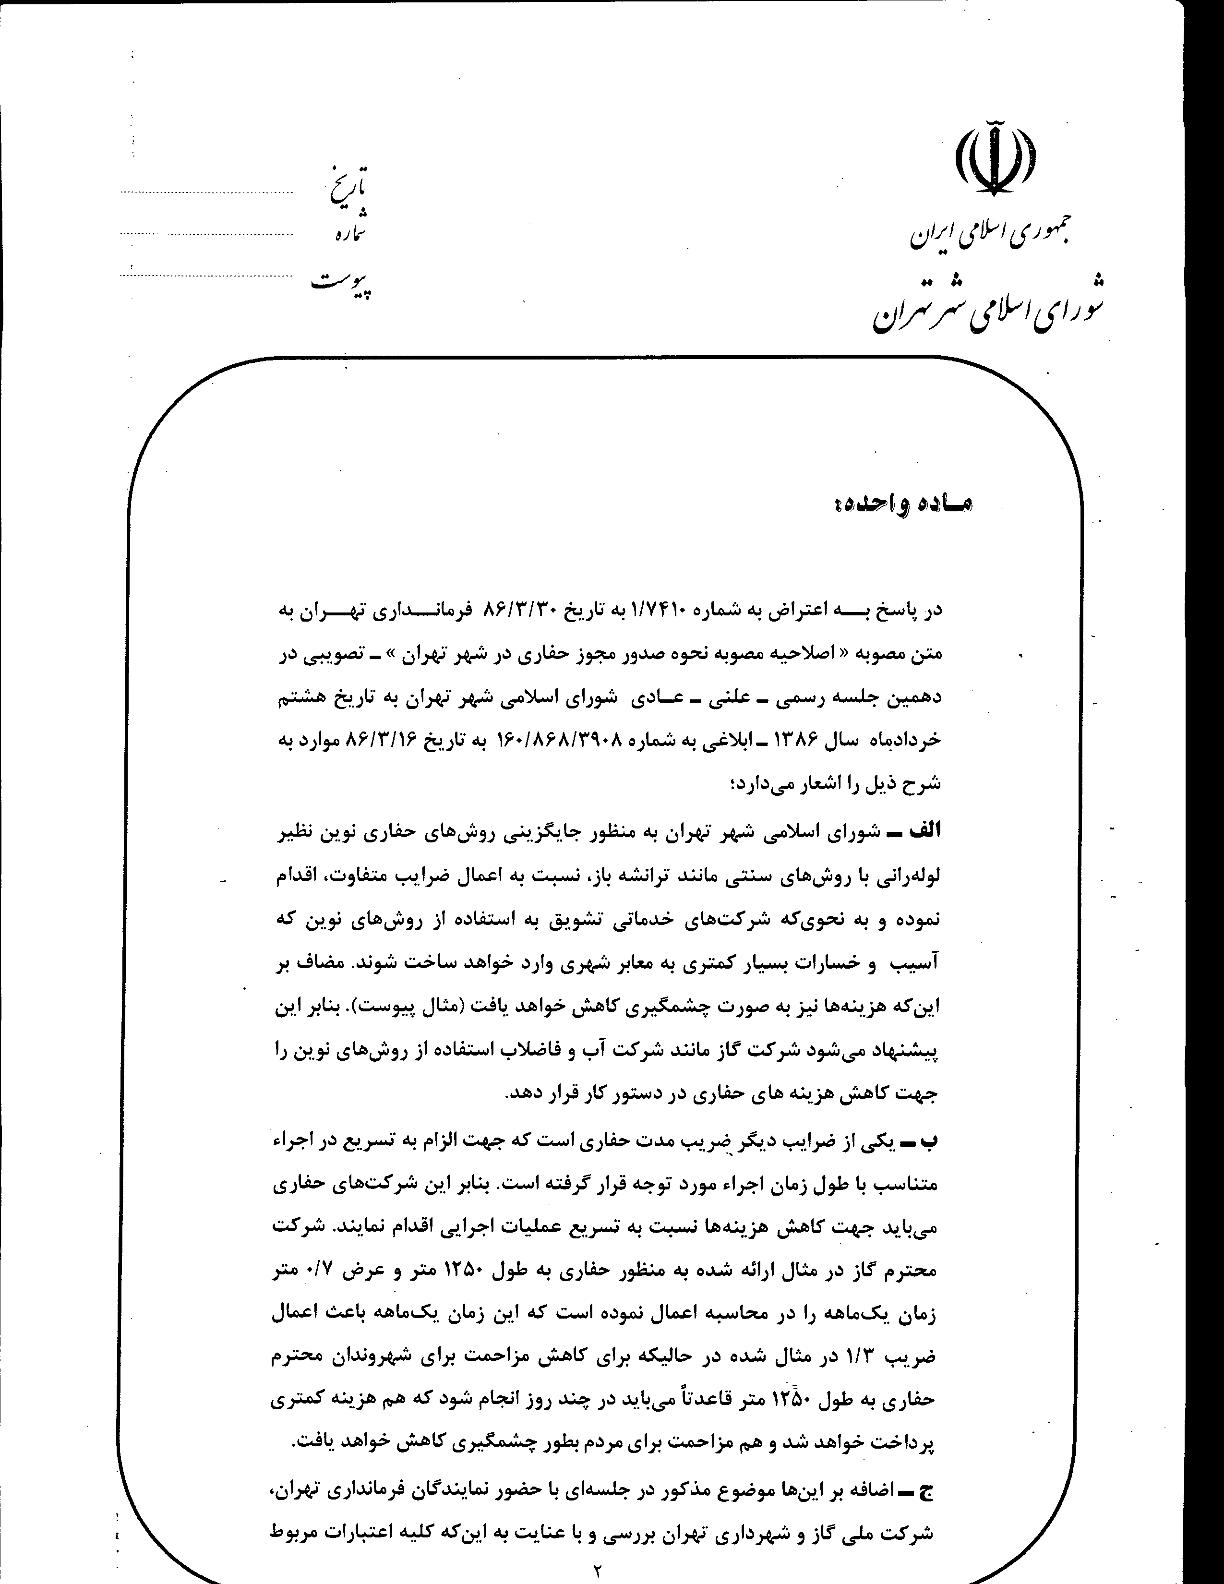 جمهوری اسلامی ایران
شورای اسلامی شهر تهران
تاریخ
شماره
پیوست
ماده واحده:
در پاسخ به اعتراض به شماره ۱/۷۴۱۰ به تاریخ ۸۶/۳/۳۰ فرمانداری تهران به
متن مصوبه « اصلاحیه مصوبه نحوه صدور مجوز حفاری در شهر تهران » ـ تصویبی در
دهمین جلسه رسمی ـ علنی ـ عادی شورای اسلامی شهر تهران به تاریخ هشتم
خردادماه سال ۱۳۸۶ ـ ابلاغی به شماره ۱۶۰/۸۶۸/۳۹۰۸ به تاریخ ۸۶/۳/۱۶ موارد به
شرح ذیل را اشعار می‌دارد؛
الف ـ شورای اسلامی شهر تهران به منظور جایگزینی روش‌های حفاری نوین نظیر
لوله‌رانی با روش‌های سنتی مانند ترانشه باز، نسبت به اعمال ضرایب متفاوت، اقدام
نموده و به نحوی‌که شرکت‌های خدماتی تشویق به استفاده از روش‌های نوین که
آسیب و خسارات بسیار کمتری به معابر شهری وارد خواهد ساخت شوند. مضاف بر
این‌که هزینه‌ها نیز به صورت چشمگیری کاهش خواهد یافت (مثال پیوست). بنابر این
پیشنهاد می‌شود شرکت گاز مانند شرکت آب و فاضلاب استفاده از روش‌های نوین را
جهت کاهش هزینه های حفاری در دستور کار قرار دهد.
ب ـ یکی از ضرایب دیگر ضریب مدت حفاری است که جهت الزام به تسریع در اجراء
متناسب با طول زمان اجراء مورد توجه قرار گرفته است. بنابر این شرکت‌های حفاری
می‌باید جهت کاهش هزینه‌ها نسبت به تسریع عملیات اجرایی اقدام نمایند. شرکت
محترم گاز در مثال ارائه شده به منظور حفاری به طول ۱۲۵۰ متر و عرض ۰/۷ متر
زمان یک‌ماهه را در محاسبه اعمال نموده است که این زمان یک‌ماهه باعث اعمال
ضریب ۱/۳ در مثال شده در حالیکه برای کاهش مزاحمت برای شهروندان محترم
حفاری به طول ۱۲۵۰ متر قاعدتاً می‌باید در چند روز انجام شود که هم هزینه کمتری
پرداخت خواهد شد و هم مزاحمت برای مردم بطور چشمگیری کاهش خواهد یافت.
ج ـ اضافه بر این‌ها موضوع مذکور در جلسه‌ای با حضور نمایندگان فرمانداری تهران،
شرکت ملی گاز و شهرداری تهران بررسی و با عنایت به این‌که کلیه اعتبارات مربوط
۲